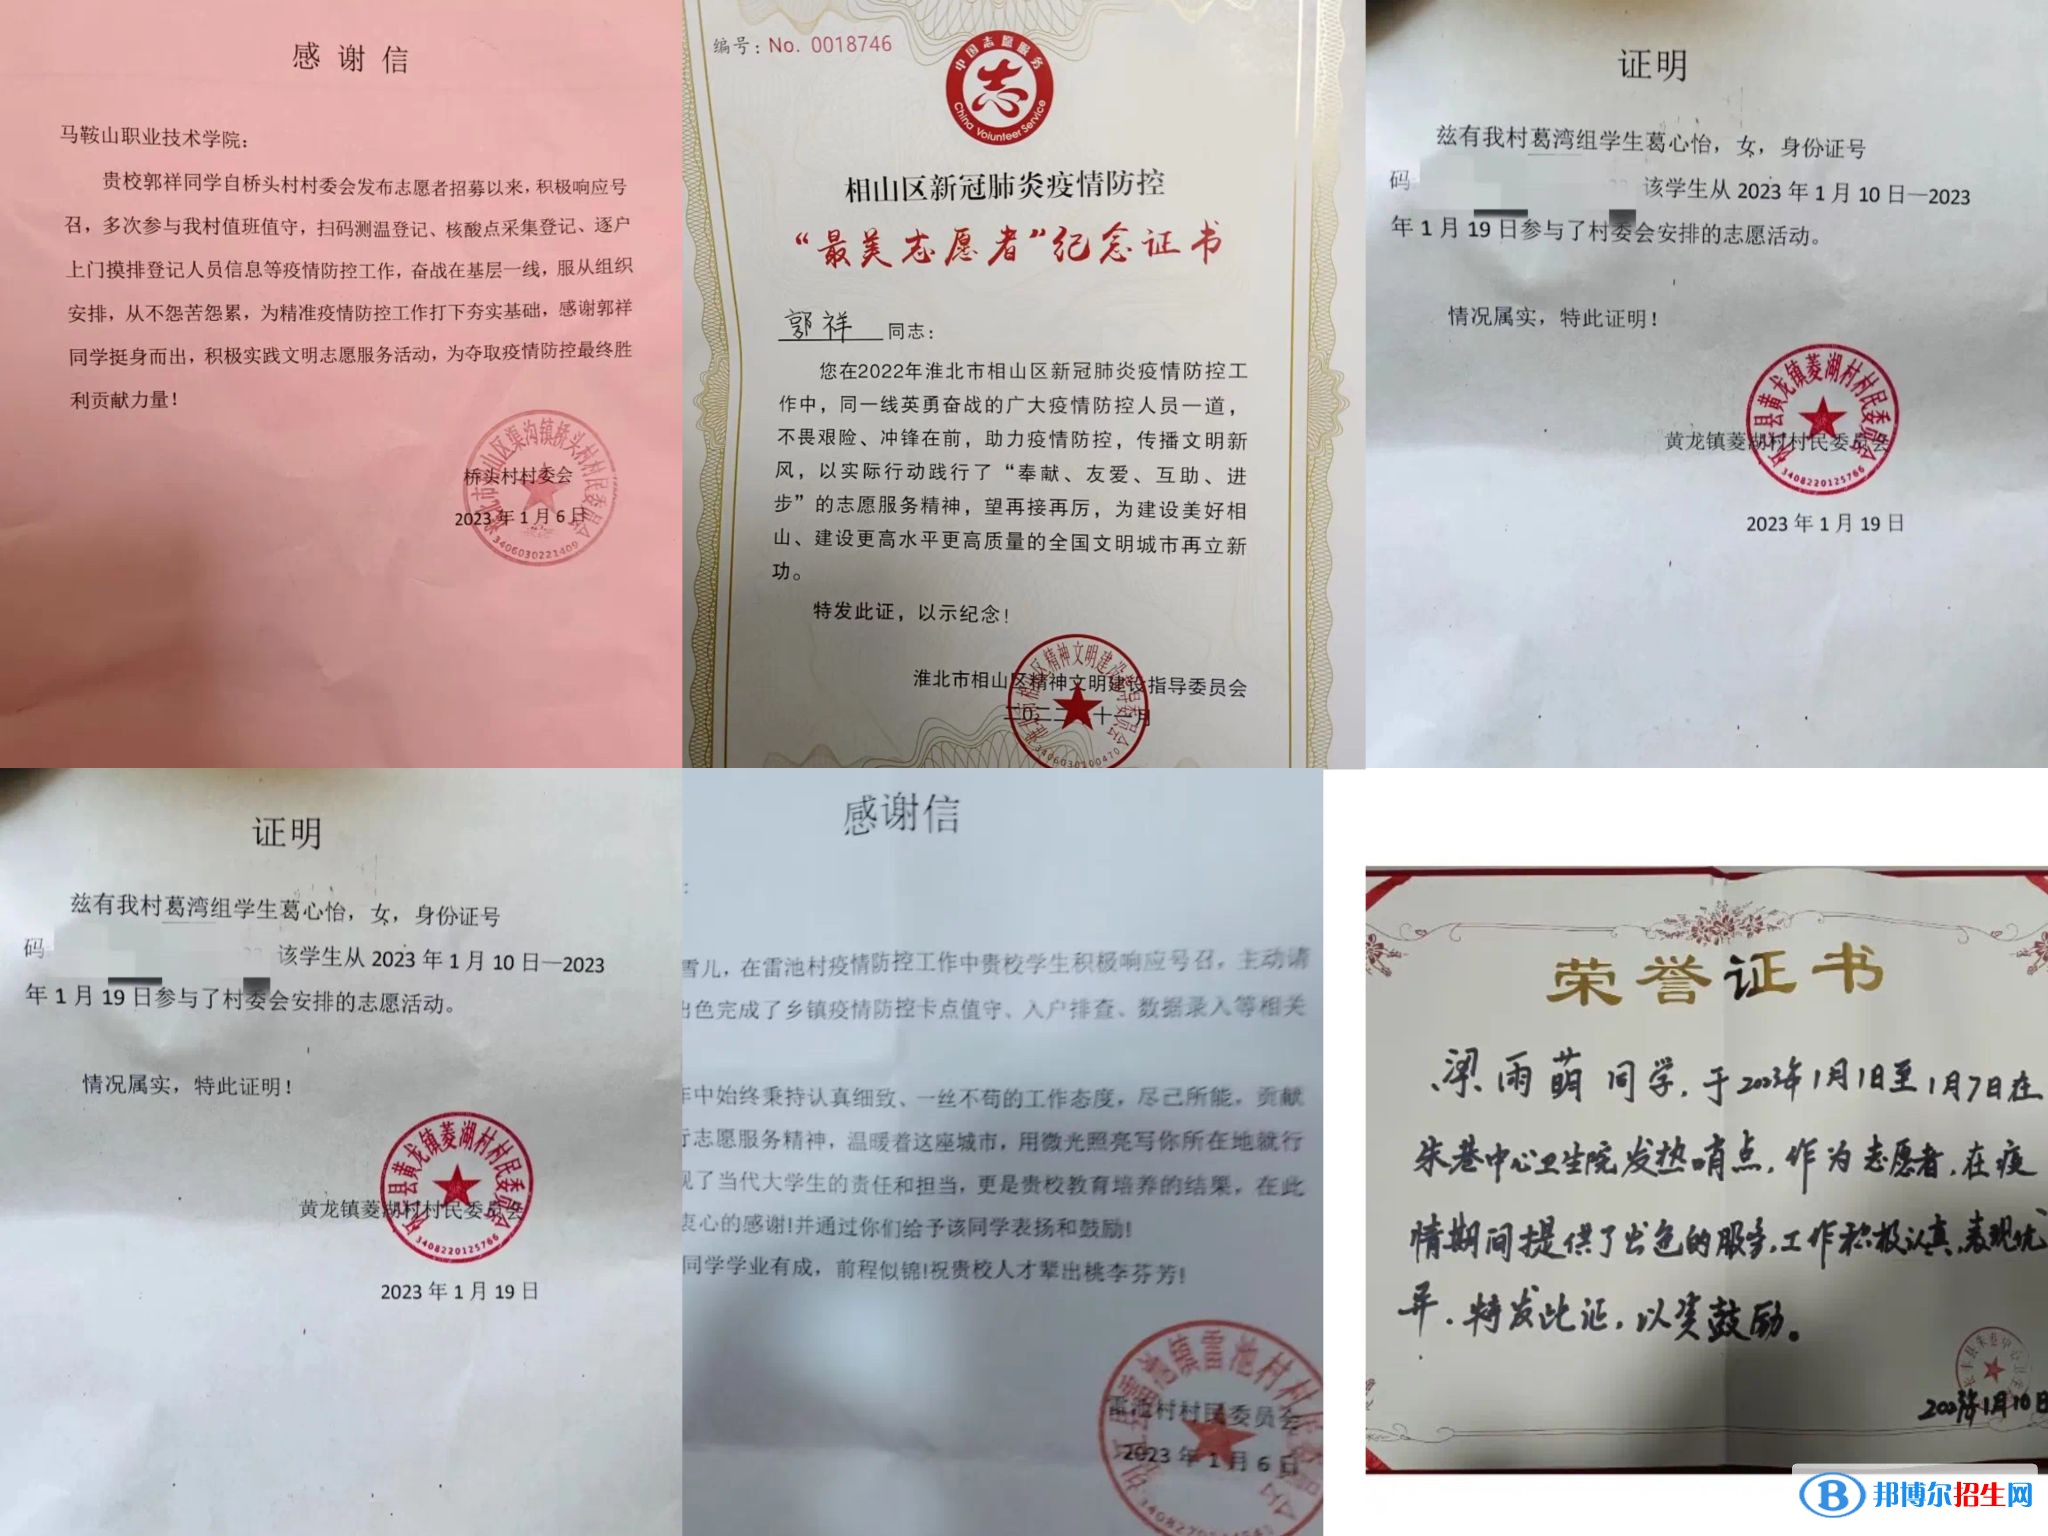 感谢信
马鞍山职业技术学院：
贵校郭祥同学自桥头村村委会发布志愿者招募以来，积极响应号
召，多次参与我村值班值守，扫码测温登记、核酸点采集登记、逐户
上门摸排登记人员信息等疫情防控工作，奋战在基层一线，服从组织
安排，从不怨苦怨累，为精准疫情防控工作打下夯实基础，感谢郭祥
同学挺身而出，积极实践文明志愿服务活动，为夺取疫情防控最终胜
利贡献力量！
桥头村村委会
2023年1月6日
3406030221409
编号：No. 0018746
中国志愿服务
志
China Volunteer Service
相山区新冠肺炎疫情防控
“最美志愿者”纪念证书
郭祥 同志：
您在2022年淮北市相山区新冠肺炎疫情防控工
作中，同一线英勇奋战的广大疫情防控人员一道，
不畏艰险、冲锋在前，助力疫情防控，传播文明新
风，以实际行动践行了“奉献、友爱、互助、进
步”的志愿服务精神，望再接再厉，为建设美好相
山、建设更高水平更高质量的全国文明城市再立新
功。
特发此证，以示纪念！
淮北市相山区精神文明建设指导委员会
二〇二二年十一月
证明
兹有我村葛湾组学生葛心怡，女，身份证号
码 该学生从 2023 年 1 月 10 日—2023
年 1 月 19 日参与了村委会安排的志愿活动。
情况属实，特此证明！
黄龙镇菱湖村村民委员会
3408220125766
2023 年 1 月 19 日
证明
兹有我村葛湾组学生葛心怡，女，身份证号
码 该学生从 2023 年 1 月 10 日—2023
年 1 月 19 日参与了村委会安排的志愿活动。
情况属实，特此证明！
黄龙镇菱湖村村民委员会
3408220125766
2023 年 1 月 19 日
感谢信
：
雪儿，在雷池村疫情防控工作中贵校学生积极响应号召，主动请
出色完成了乡镇疫情防控卡点值守、入户排查、数据录入等相关
中始终秉持认真细致、一丝不苟的工作态度，尽己所能，贡献
行志愿服务精神，温暖着这座城市，用微光照亮写你所在地就行
现了当代大学生的责任和担当，更是贵校教育培养的结果，在此
衷心的感谢!并通过你们给予该同学表扬和鼓励!
同学学业有成，前程似锦!祝贵校人才辈出桃李芬芳!
雷池村村民委员会
2023 年 1 月 6 日
荣誉证书
梁雨萌同学，于2023年1月1日至1月7日在
朱巷中心卫生院发热哨点，作为志愿者，在疫
情期间提供了出色的服务，工作积极认真，表现优
异，特发此证，以资鼓励。
2023年1月10日
邦博尔招生网